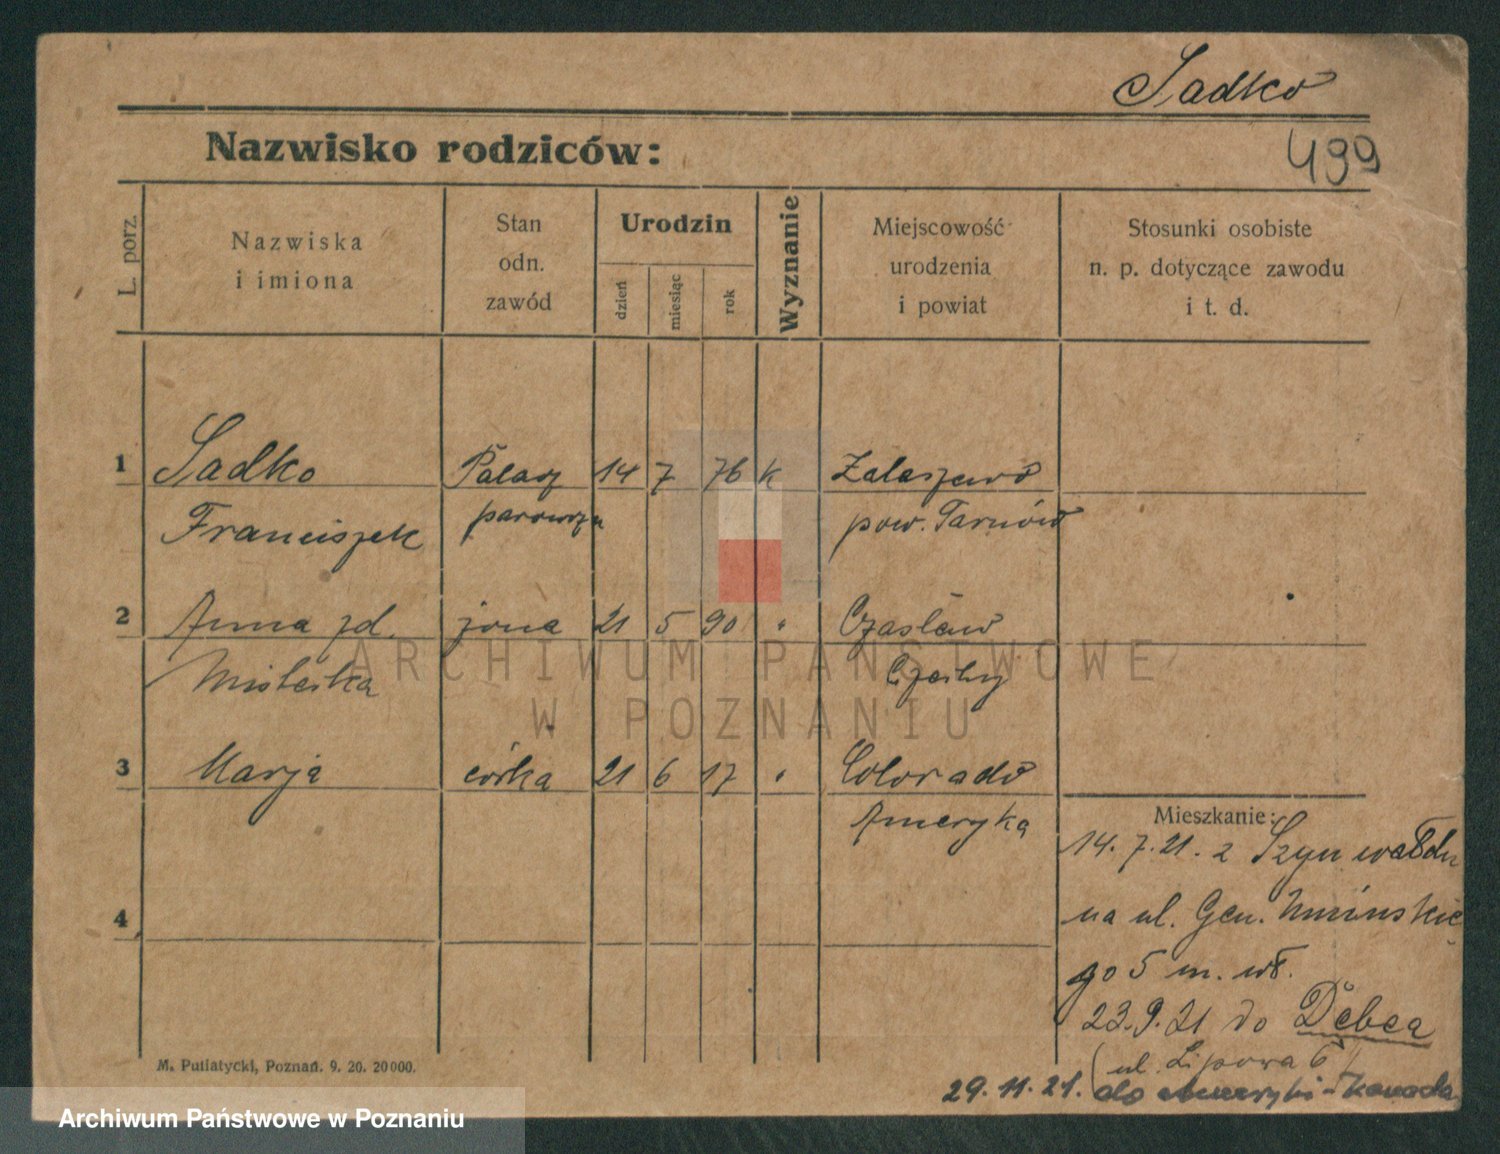 Sadko
Nazwisko rodziców:
499
L. porz.
Nazwiska
i imiona
Stan
odn.
zawód
Urodzin
dzień
miesiąc
rok
Wyznanie
Miejscowość
urodzenia
i powiat
Stosunki osobiste
n. p. dotyczące zawodu
i t. d.
1 Sadko Palacz 14 7 76 k Zalaszewo
Franciszek parowozu pow. Tarnów
2 Anna zd. żona 21 5 90 " Czasław
Czechy
3 Marja córka 21 6 17 " Colorado
Ameryka
Mieszkanie:
14.7.21. z Szynwałdu
na ul. Gen. Umińskie
go 5 m. wł.
4
23.9.21 do Dębca
(ul. Lipowa 6)
29.11.21. do Ameryki - Kanada
M. Putiatycki, Poznań. 9. 20. 20000.
ARCHIWUM PAŃSTWOWE
W POZNANIU
Archiwum Państwowe w Poznaniu